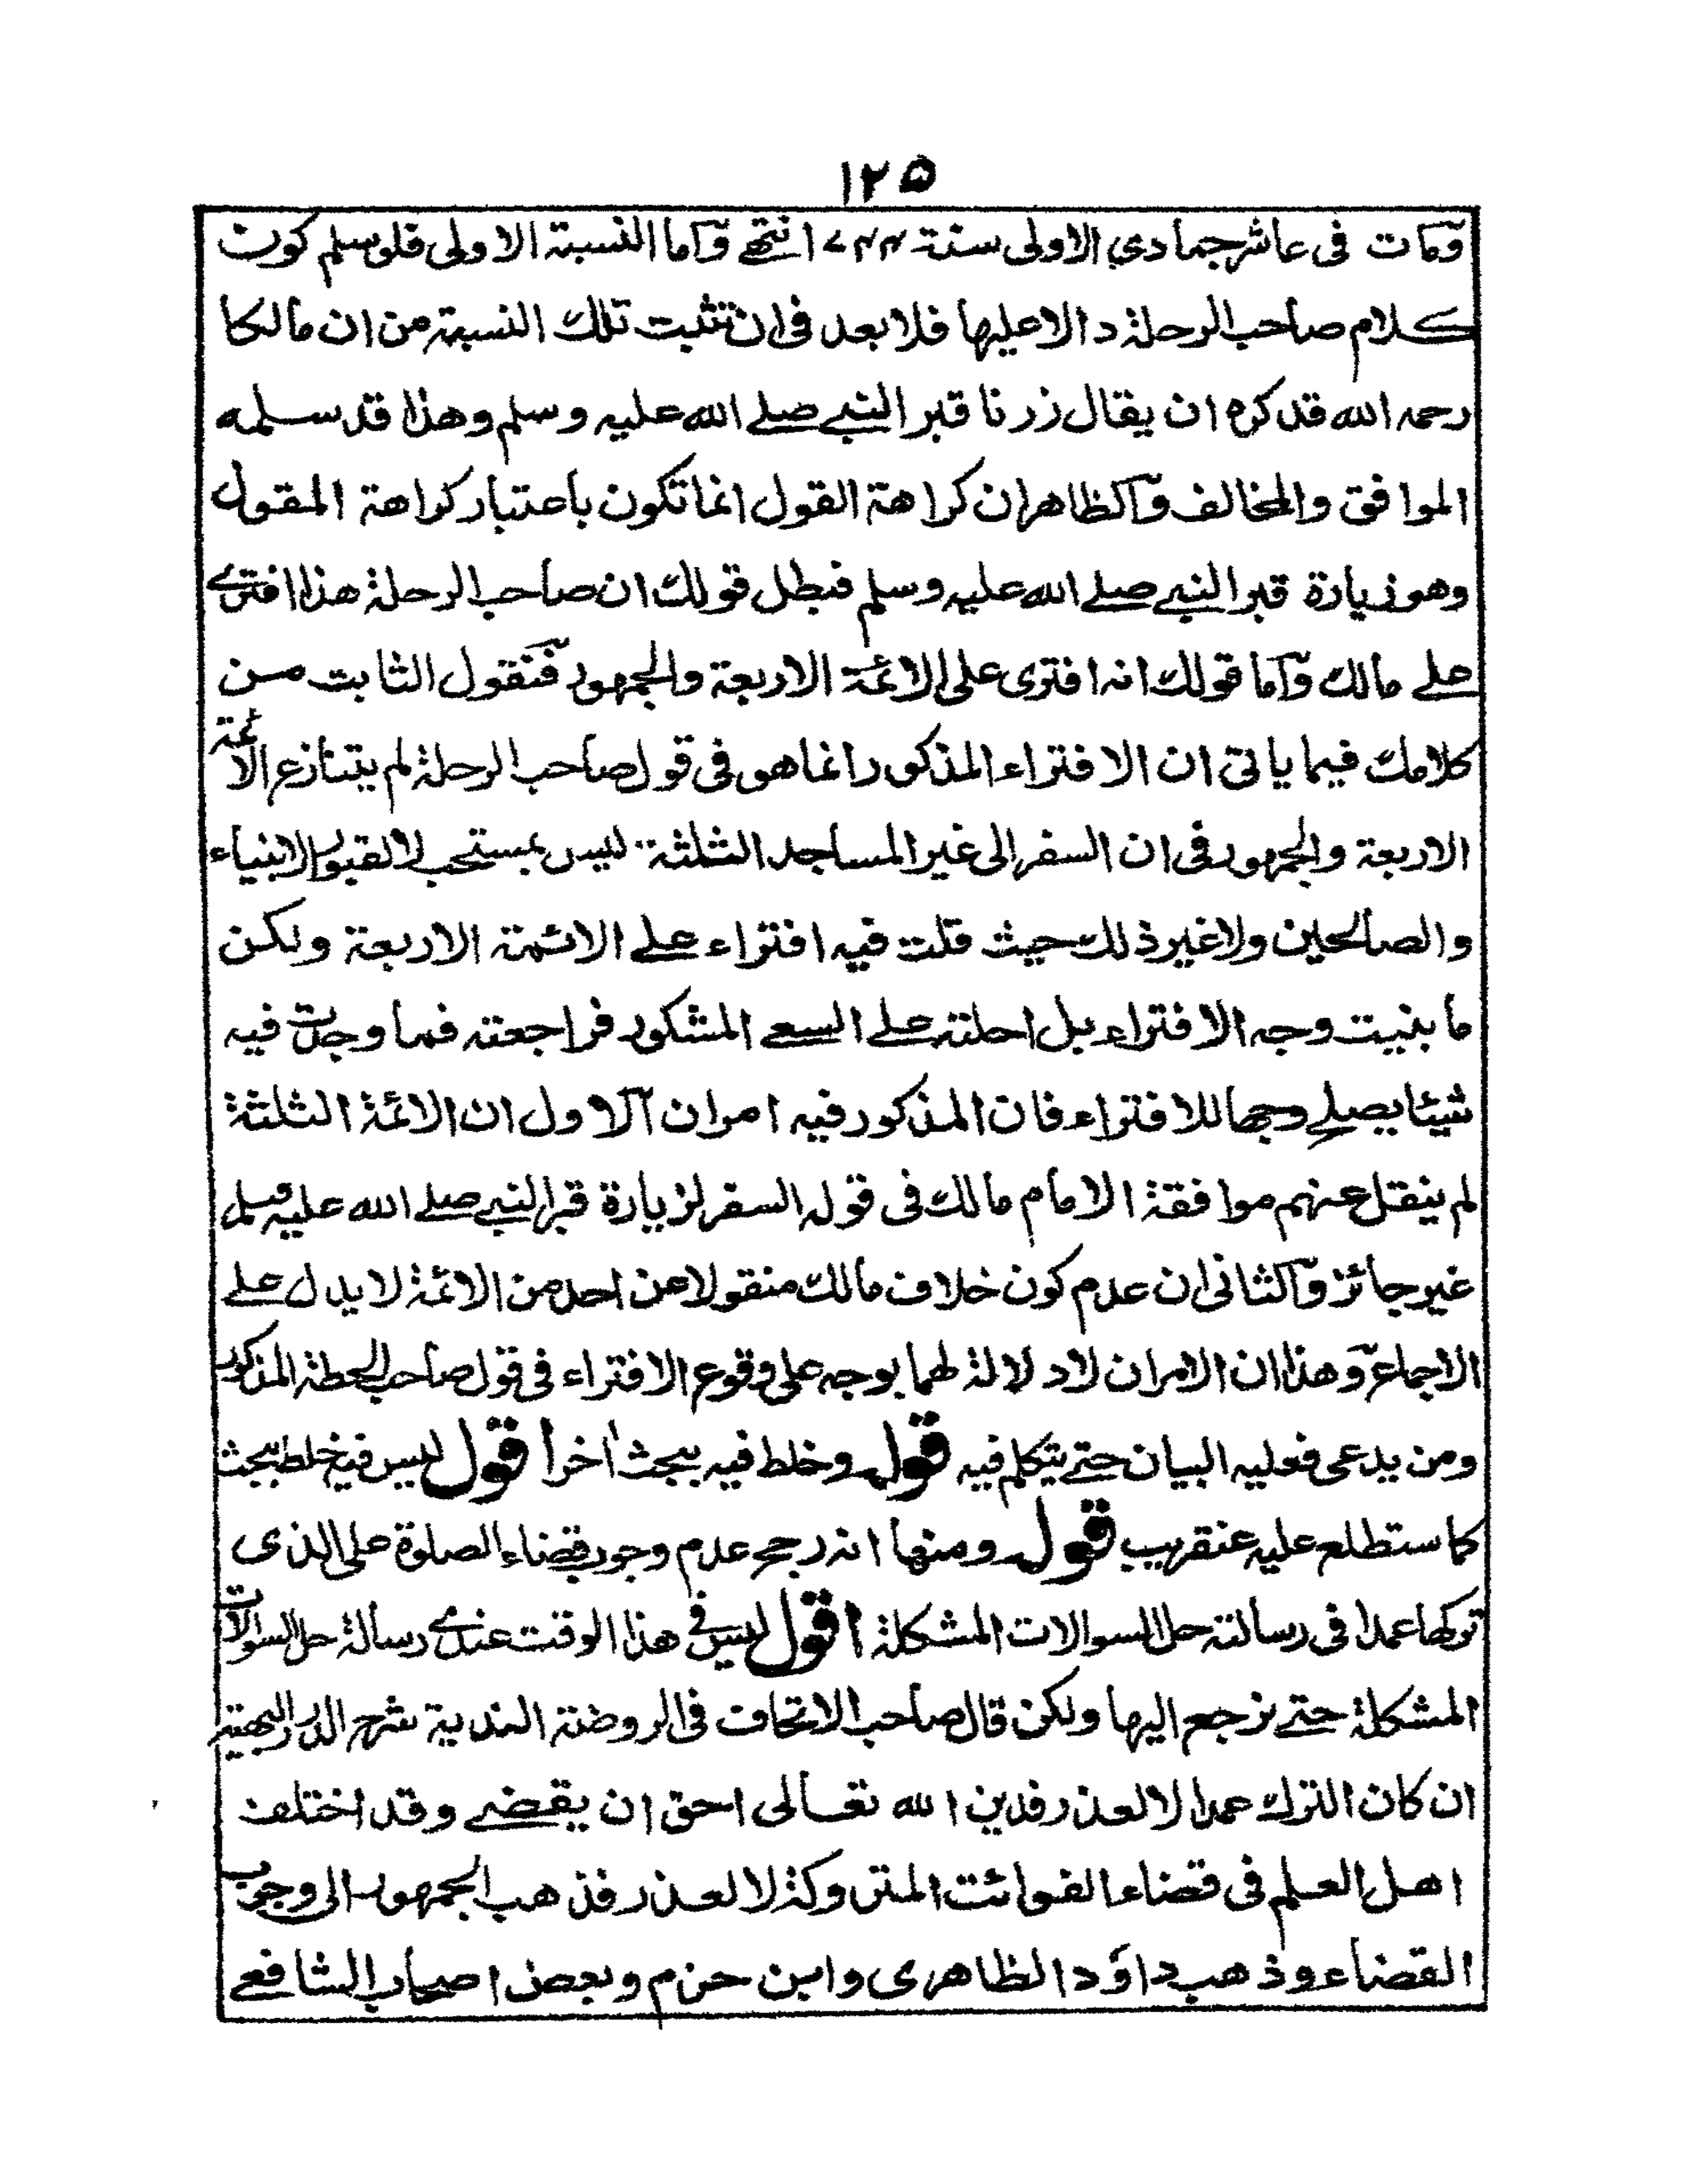 ١٢٥
ومات فى عاشر جمادي الاولى سنة ٧٤٤ انتهے واما النسبة الاولى فلو سلم كون
كلام صاحب الرحلة دالا عليها فلا بعد فى ان تثبت تلك النسبة من ان مالكا
رحمه الله قد كره ان يقال زرنا قبر النبے صلے الله عليه وسلم وهذا قد سلمه
الموافق والمخالف والظاهر ان كراهة القول انما تكون باعتبار كراهة المقول
وهو زيارة قبر النبے صلے الله عليه وسلم فبطل قولك ان صاحب الرحلة هذا افترے
علے مالك واما قولك انه افترى على الائمة الاربعة والجمهور فنقول الثابت من
كلامك فيما ياتى ان الافتراء المذكور انما هو فى قول صاحب الرحلة لم يتنازع الائمة
الاربعة والجمهور فى ان السفر الى غير المساجد الثلثة ليس بمستحب لا لقبور الانبياء
والصالحين ولا غير ذلك حيث قلت فيه افتراء علے الائمة الاربعة ولكن
ما بنيت وجه الافتراء بل احلته علے السعے المشكور فراجعته فما وجدت فيه
شيئا يصلح وجها للافتراء فان المذكور فيه امران الاول ان الائمة الثلثة
لم ينقل عنهم موافقة الامام مالك فى قوله السفر لزيارة قبر النبے صلے الله عليه وسلم
غير جائز والثانى ان عدم كون خلاف مالك منقولا عن احد من الائمة لا يدل علے
الاجماع وهذا ان الامران لا دلالة لهما بوجه على وقوع الافتراء فى قول صاحب الحطة المذكور
ومن يدعى فعليه البيان حتے يتكلم فيه قوله وخلط فيه ببحث اخر اقول ليس فيه خلط ببحث
كما ستطلع عليه عنقريب قوله ومنها انه رجح عدم وجوب قضاء الصلوة على الذى
تركها عمدا فى رسالته حل السوالات المشكلة اقول ليس فے هذا الوقت عندے رسالة حل السوالات
المشكلة حتے نرجع اليها ولكن قال صاحب الاتحاف فى الروضة الندية شرح الدرر البهية
ان كان الترك عمدا لا لعذر فدين الله تعالى احق ان يقضے وقد اختلف
اهل العلم فى قضاء الفوائت المتروكة لا لعذر فذهب الجمهور الى وجوب
القضاء وذهب داؤد الظاهرى وابن حزم وبعض اصحاب الشافعے